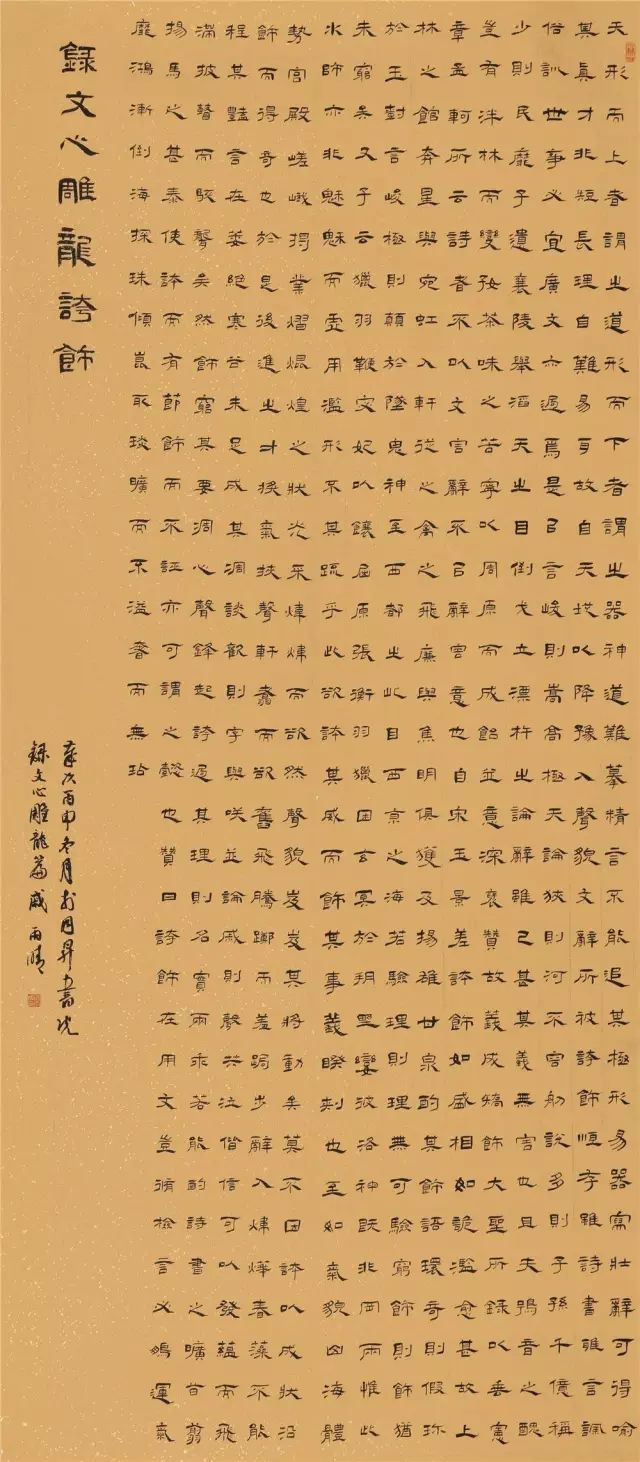 天形而上者謂之道形而下者謂之器神道難摹精言不能追其極形易器寫壯辭可得喻
其真才非短長理自難易耳故自天地以降豫入聲貌文辭所被誇飾恒存雖詩書雅言諷
俗訓世事必宜廣文亦過焉是以言峻則嵩高極天論狹則河不容舠說多則子孫千億稱
少則民靡孑遺襄陵舉滔天之目倒戈立漂杵之論辭雖已甚其義無害也且夫鴞音之醜
豈有泮林而變好荼味之苦寧以周原而成飴並意深褒贊故義成矯飾大聖所錄以垂憲
章孟軻所云詩者不以文害辭不以辭害意也自宋玉景差誇飾如盛相如詭濫愈甚故上
林之館奔星與宛虹入軒從之禽之飛廉與焦明俱獲及揚雄甘泉酌其飾語環奇則假珍
於玉對言峻極則顛於墜鬼神至西都之比目西京之海若驗理則理無可驗窮飾則飾猶
未窮矣又子云獵羽鞭宓妃以饟屈原張衡羽獵困玄冥於朔野孌彼洛神既非罔兩惟此
水師亦非魅魅而虛用濫形不其疏乎此欲誇其威而飾其事義睽剌也至如氣貌山海體
勢宮殿嵯峨揭業熠焜煌之狀光采煒煒而欲然聲貌岌岌其將動矣莫不因誇以成狀沿
飾而得奇也於是後進之才獎氣挾聲軒翥而欲奮飛騰躑而羞跼步辭入煒燁春藻不能
程其豔言在萎絕寒谷未足成其凋談歡則字與咲並論戚則聲共泣偕信可以發蘊而飛
滯披瞽而駭聾矣然飾窮其要凋心聲鋒起誇過其理則名實兩乖若能酌詩書之曠旨翦
揚馬之甚泰使誇而有節飾而不誣亦可謂之懿也贊曰誇飾在用文豈循檢言必鵬運氣
靡鴻漸倒海探珠傾崑取琰曠而不溢奢而無玷
錄文心雕龍誇飾
歲次丙申冬月於同昇書院
錄文心雕龍篇戚雨晴